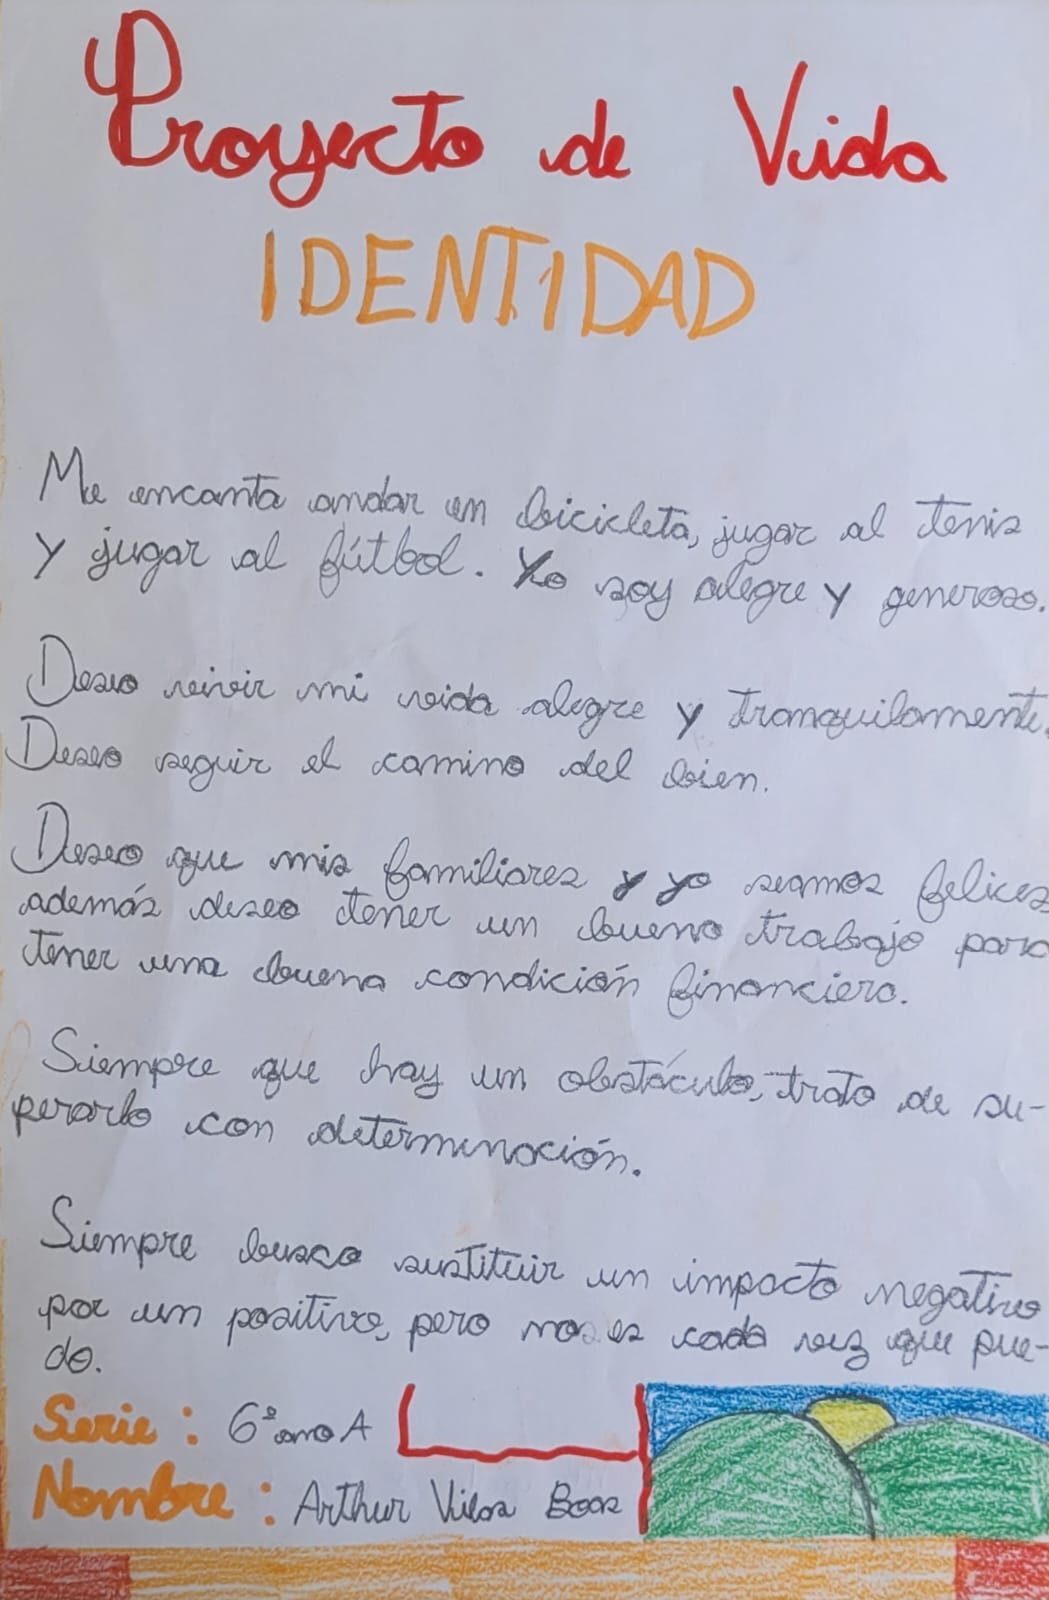 Proyecto de Vida
IDENTIDAD
Me encanta andar en bicicleta, jugar al tenis
y jugar al fútbol. Yo soy alegre y generoso.
Deseo vivir mi vida alegre y tranquilamente.
Deseo seguir el camino del bien.
Deseo que mis familiares y yo seamos felices
además deseo tener un bueno trabajo para
tener una buena condición financiera.
Siempre que hay un obstáculo, trato de su-
perarlo con determinación.
Siempre busco sustituir un impacto negativo
por un positivo, pero no es cada vez que pue-
do.
Serie: 6º ano A
Nombre: Arthur Vilas Boas